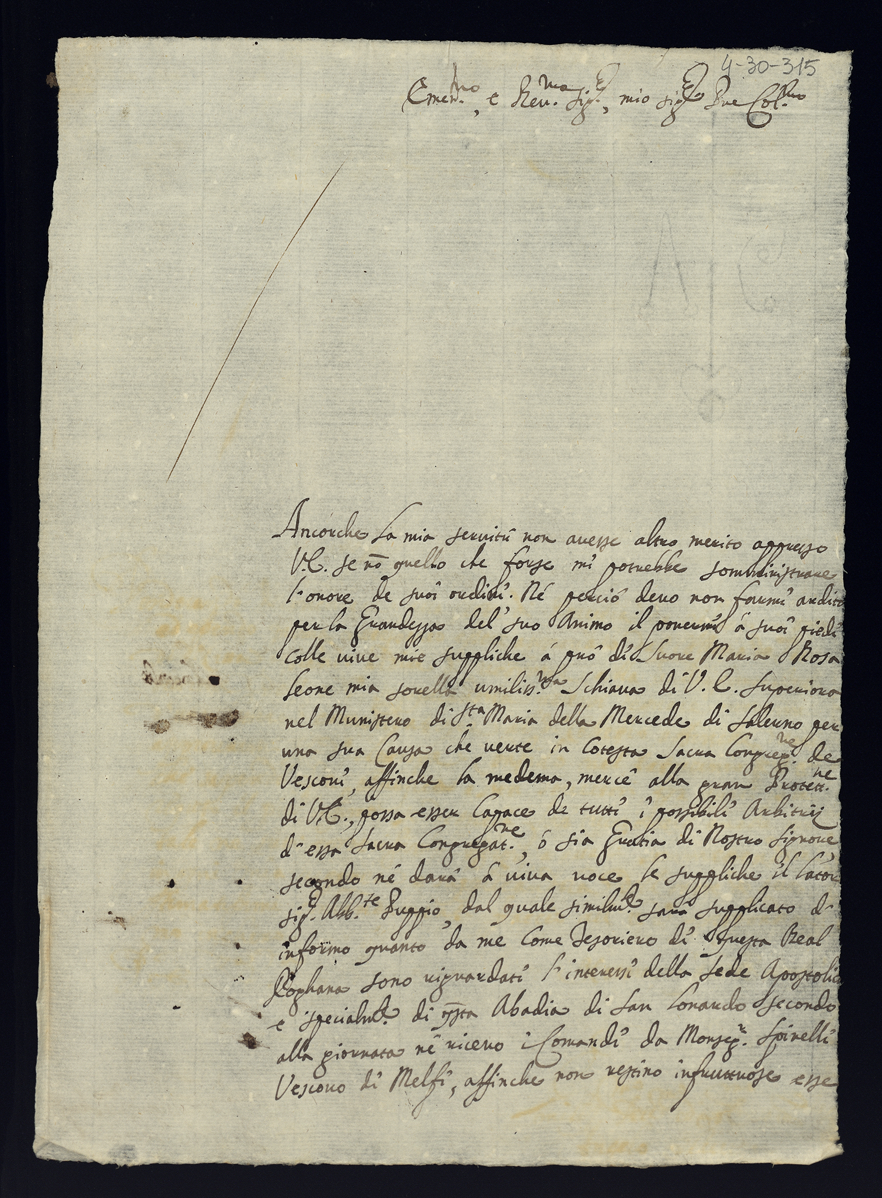 4-30-315
Emen.mo, e Reu.ma sig.e, mio sig.e Pne Col.mo
Ancorche la mia seruitù non auesse altro merito appresso
V.E. se nō quello che forse mi potrebbe somministrare
l'onore de suoi ordini. Né perciò deuo non farmi ardito
per la Grandezza del' suo Animo il ponermi á suoi piedi
colle viue mie suppliche á prò di Suore Maria Rosa
Leone mia sorella umilis.ma Schiaua di V.E. superiora
nel Munistero di S.ta Maria della Mercede di Salerno per
una sua Causa che uerte in Cotesta Sacra Congreg.ne de
Vescoui, affinche la medema, mercé alla gran Protett.ne
di V.E., possa esser Capace de tutti i possibili Arbitrij
di essa Sacra Congregat.ne, ó sia Gratia di Nostro Signore
secondo né dará á viua voce le suppliche il lator
sig.e Abb.te Puggio, dal quale similm.e sará supplicato di
informo quanto da me Come Tesoriero di questa Real
Dophana sono riguardati l'interessi della Sede Apostolica
e specialm.e di qsta Abadia di San Lonardo secondo
alla giornata né riceuo i Comandi da Monseg.r Spinelli
Vescouo di Melfi, affinche non restino infruttuose esse